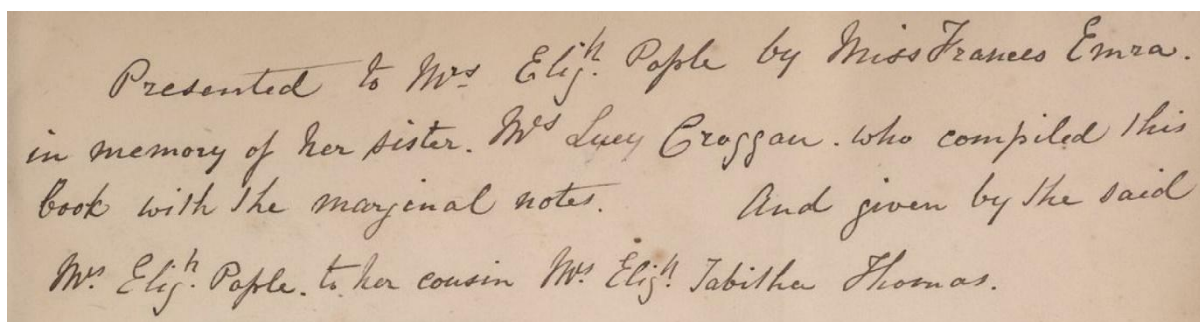 Presented to Mrs Elizh. Pople by Miss Frances Emra.
in memory of her sister. Mrs Lucy Croggan. who compiled this
book with the marginal notes. And given by the said
Mrs. Elizh. Pople. to her cousin Mrs. Elizh. Tabitha Thomas.